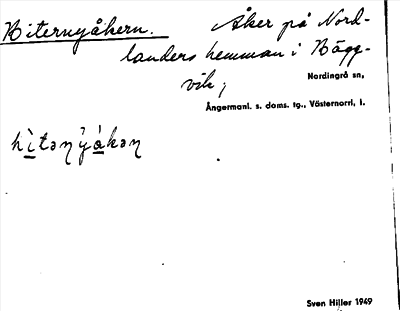 Hiternyåkern. Åker på Nord-
landers hemman i Hägg-
vik,
Nordingrå sn,
Ångermanl. s. doms. tg., Västernorrl. l.
Sven Hiller 1949